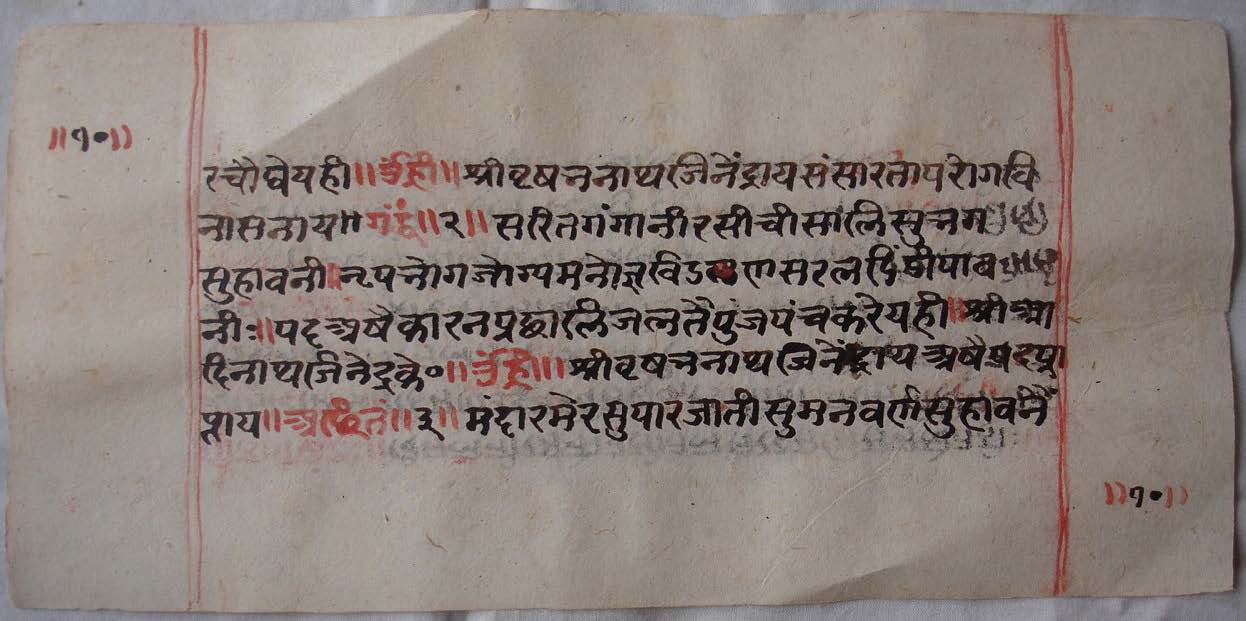 ॥१०॥
रचौ ध्वेयही॥ उँह्री॥ श्रीवृषभनाथजिनेंद्राय संसारतापरोगवि
नासनाय॥ गंद्धं॥२॥ सरितगंगानीरसीची सालि सुभग
सुहावनी॥ नृपभोगजोग्यमनोज्ञ सरल
नीः॥ पद अषैकारनप्रछालिजलतै पुंजपंचकरेयही॥ श्रीआ
दिनाथजिनेद्रके०॥ उँह्री॥ श्रीवृषभनाथजिनेंद्राय अषैपदप्रा
प्ताय॥ ॥३॥ मंदारमेरसुपारजाती सुमनवर्णसुहावनै
॥१०॥